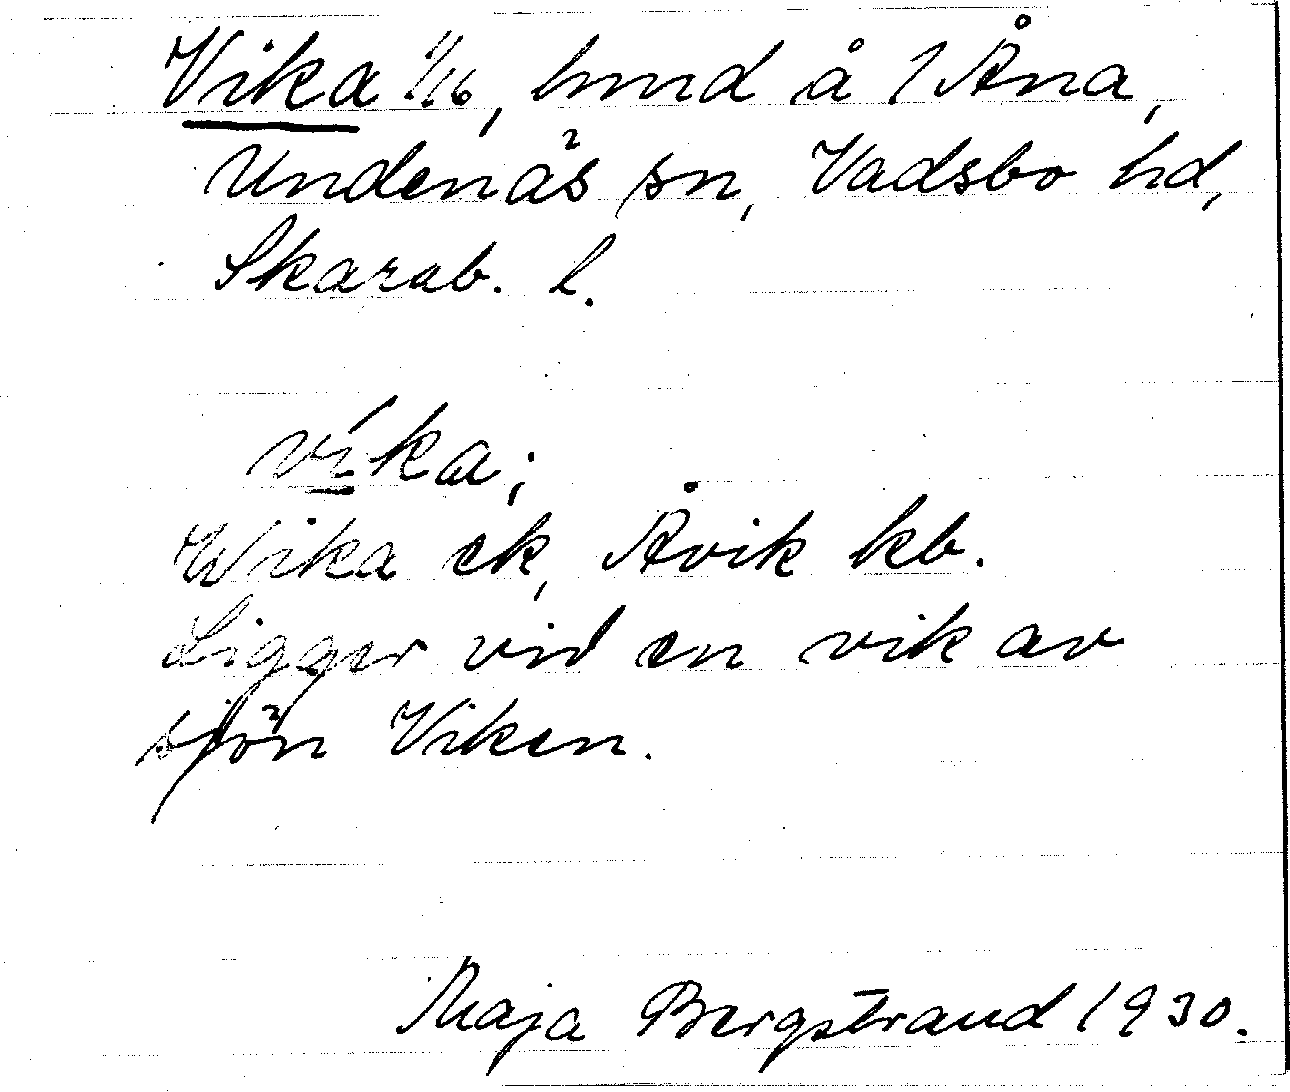 Vika 1/16, hmd å 1 Åna,
Undenäs sn, Vadsbo hd,
Skarab. l.
víka;
Wika ek, Åvik kb.
Ligger vid en vik av
sjön Viken.
Maja Bergstrand 1930.